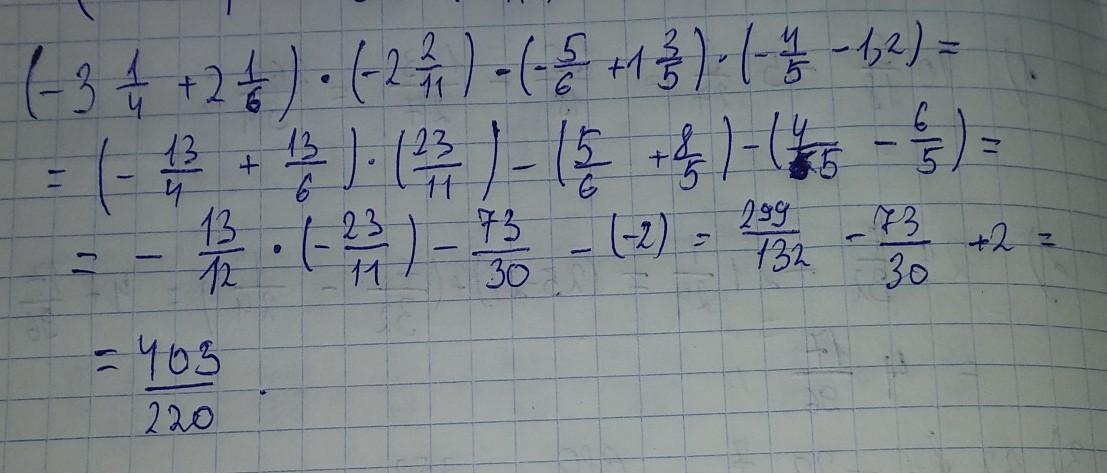 (-3 1/4 + 2 1/6) · (-2 2/11) - (-5/6 + 1 3/5) · (-4/5 - 1,2) =
= (-13/4 + 13/6) · (23/11) - (5/6 + 8/5) - (4/5 - 6/5) =
= - 13/12 · (-23/11) - 73/30 - (-2) = 299/132 - 73/30 + 2 =
= 403/220 .